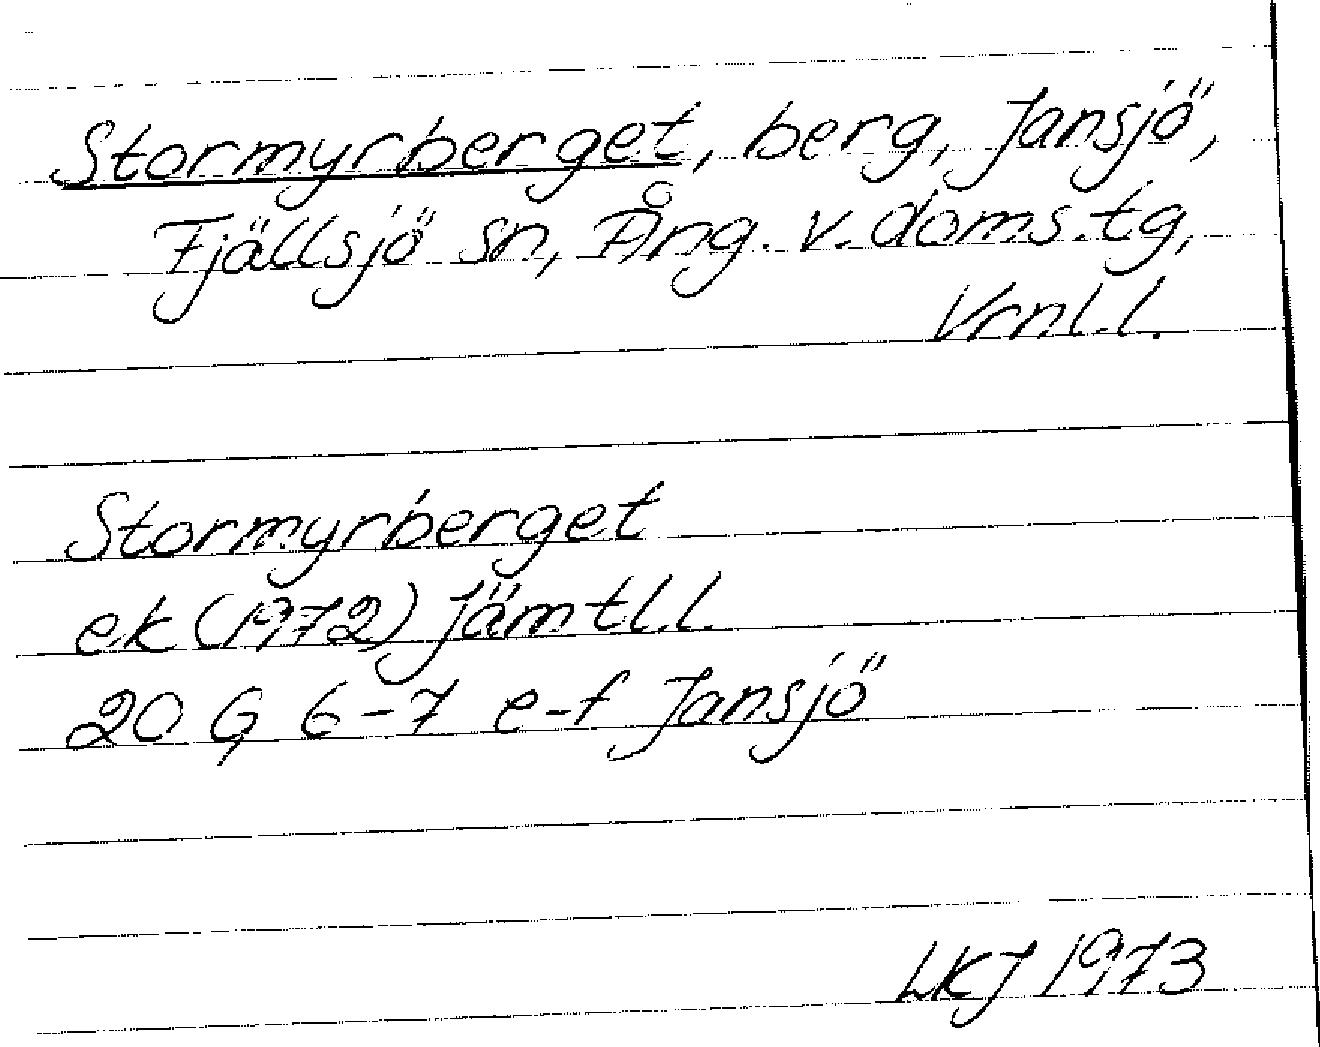 Stormyrberget, berg, Jansjö,
Fjällsjö sn, Ång. v. doms. tg,
Vrnl. l.
Stormyrberget
ek (1972) Jämtl. l.
20 G 6-7 e-f Jansjö
LKJ 1973